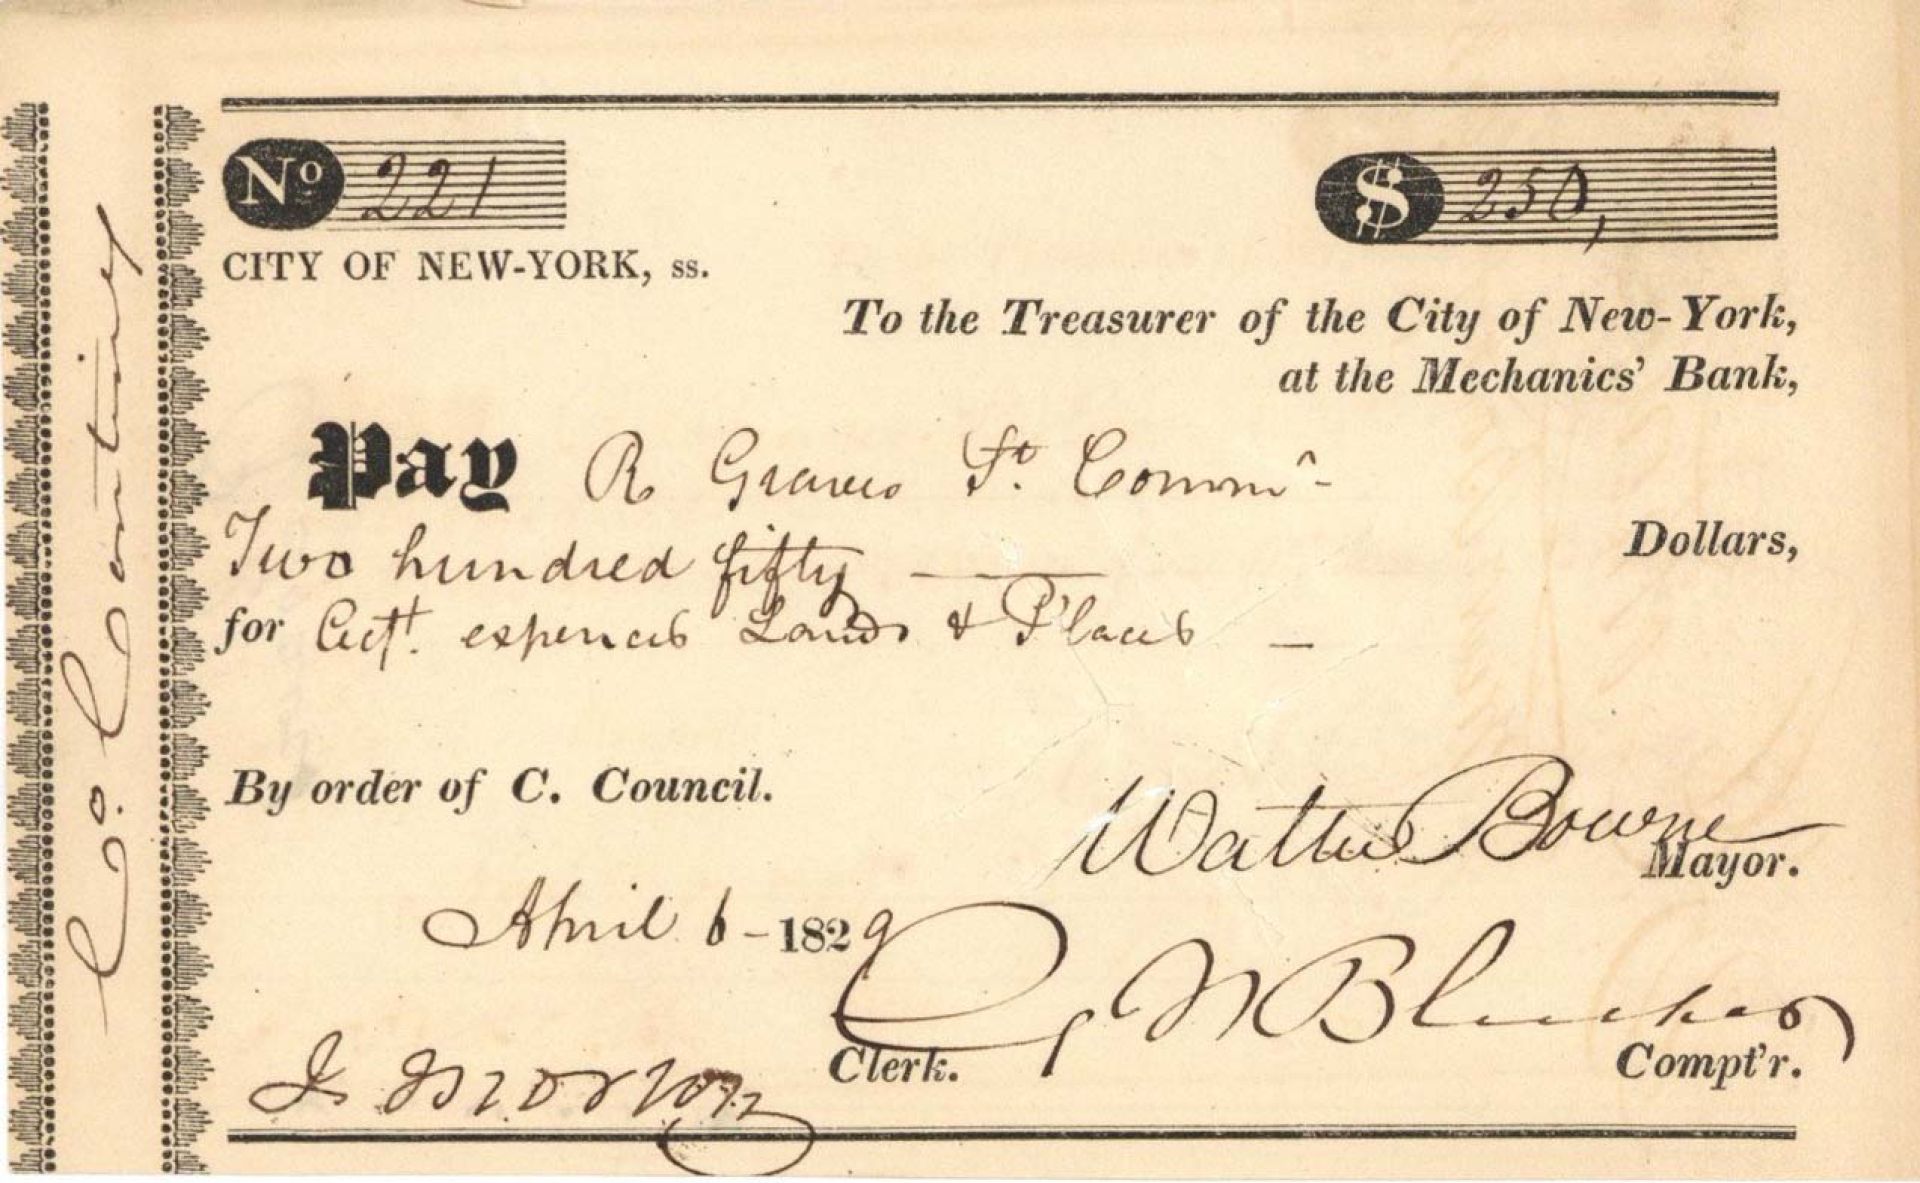 No 221
$ 250,
CITY OF NEW-YORK, ss.
To the Treasurer of the City of New-York,
at the Mechanics' Bank,
Pay R Graves St. Commr
Two hundred fifty Dollars,
for Acct. expences Lands & Places
By order of C. Council.
Walter Bowne
Mayor.
April 6 - 1829
Clerk.
Compt'r.
J Morton
Co.